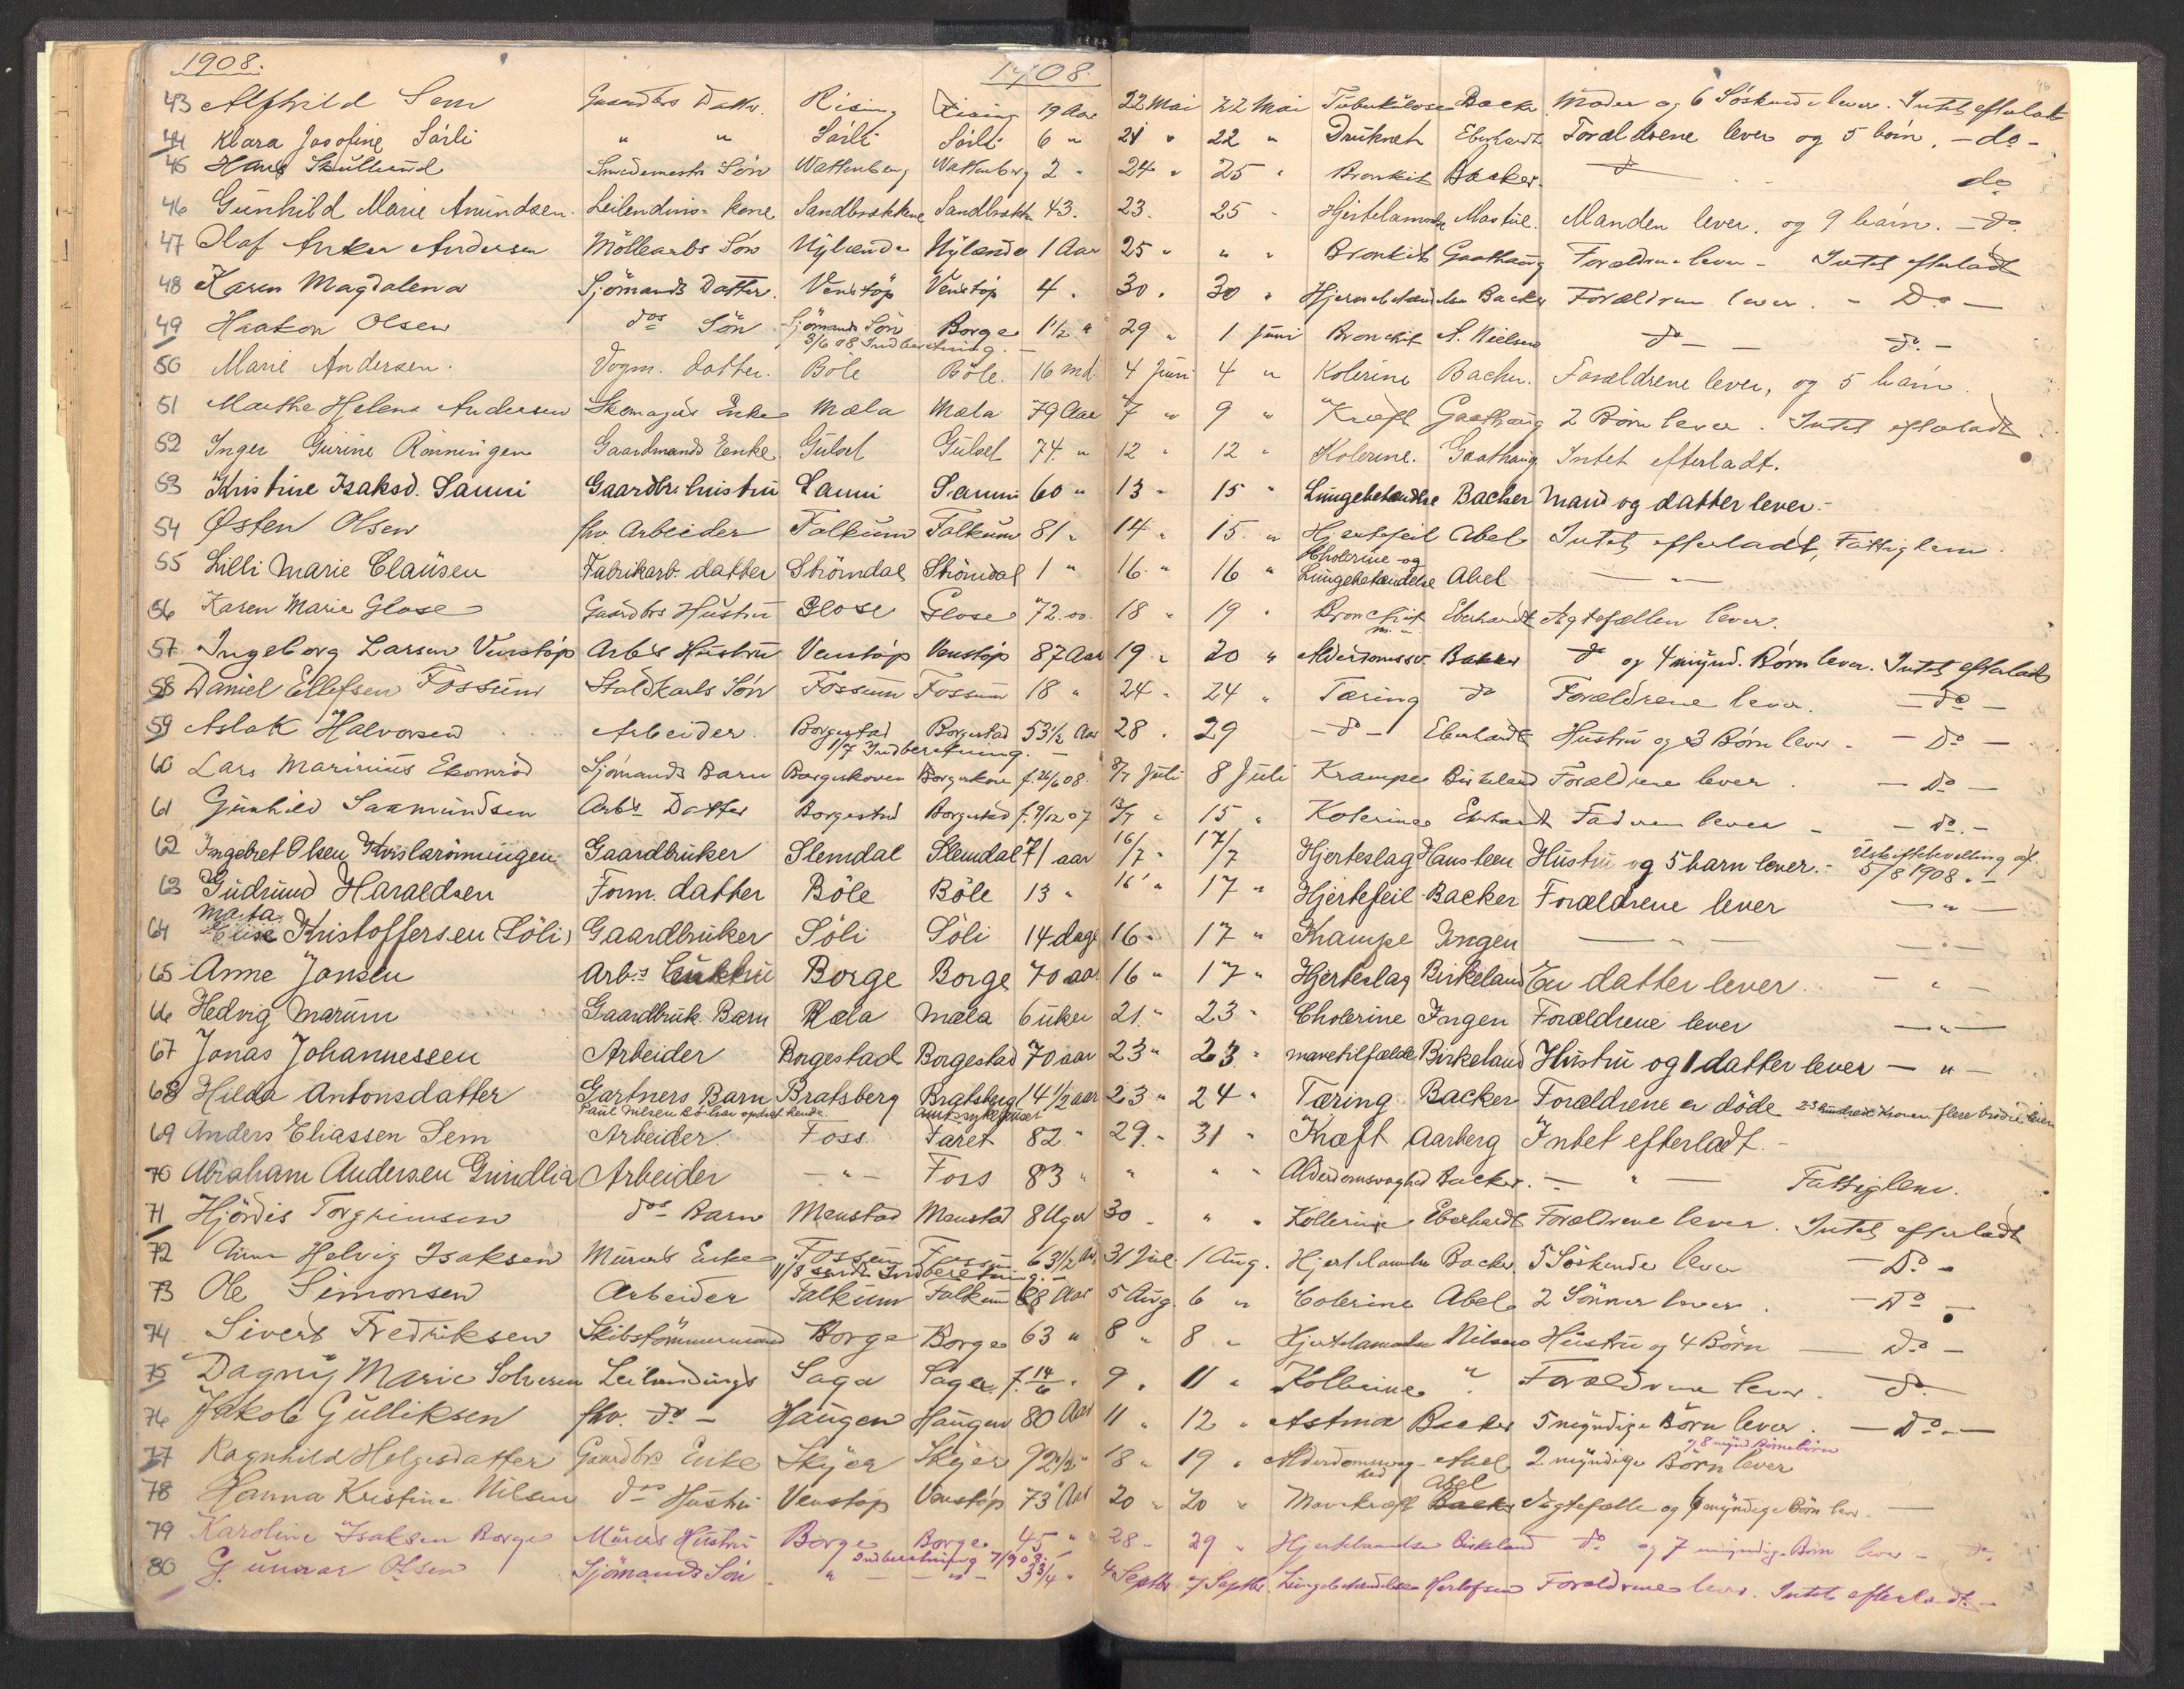 1908. 1908.
43 Alfhild Sem Gaardbrs Datter Rising Rising 19 Aar 22 Mai 22 Mai Tuberkulose Backer Moder og 6 Söskende lever. Intet efterladt
44 Klara Josefine Sörli " " Sörli Sörli 6 " 21 " 22 " Druknet Eberhardt Forældrene lever og 5 börn. - do -
45 Hans Skullerud Smedemester Sön Wattenberg Wattenberg 2 " 24 " 25 " Bronkit Backer. do
46 Gunhild Marie Amundsen. Leilendings kone Sandbrækkene Sandbrækk 43. 23. 25 " Hjertelammelse Manden lever, og 9 barn. - do
47 Olaf Anker Andersen Möllearbs Sön Nylænde Nylænde 1 Aar 25 " " " Bronkit Gaathaug Forældrene lever - Intet efterladt
48 Karen Magdalena Sjömands Datter. Venstöp Venstöp 4 " 30 " 30 " Hjernebetændelse Backer Forældrene lever. - Do -
49 Haakon Olsen dos Sön Sjömands Sön Borge 1 1/2 " 29 " 1 Juni Bronchit S. Nielsen do - - do. -
3/6 08 Indberetning. -
50 Marie Andersen. Vogm. datter. Böle Böle. 16 md. 4 Juni 4 " Kolerine Backer. Forældrene lever, og 5 barn.
51 Marthe Helene Andersen Skomagers Enke Mæla Mæla 79 Aar 7 " 9 " Kræft Gaathaug 2 Börn lever. Intet efterladt
52 Inger Gurine Rönningen Gaardmands Enke. Gulset Gulset 74 " 12 " 12 " Kolerine. Gaathaug Intet efterladt.
53 Kristine Isaksd. Sanni Gaardbr. hustru Sanni Sanni 60 " 13 " 15 " Lungebetændelse Backer Mand og datter lever. -
54 Østen Olsen fhv. Arbeider Falkum Falkum 81 " 14 " 15 " Hjertefeil Abel Intet efterladt, Fattiglem.
55 Lilli Marie Clausen Fabrikarb. datter Strömdal Strömdal 1 " 16 " 16 " Cholerine og Lungebetændelse Abel - " -
56 Karen Marie Glose Gaardbrs Hustru Glose Glose 72 18 " 19 " Bronchit Eberhardt Ægtefællen lever.
57 Ingeborg Larsen Venstöp Arb's Hustru Venstöp Venstöp 87 Aar 19 " 20 " Alderdomssv. Backer do og 4 mynd. Börn lever. Intet efterladt
58 Daniel Ellefsen Fossum Staldkarls Sön Fossum Fossum 18 " 24 " 24 " Tæring do Forældrene lever. - do -
59 Aslak Halvorsen Arbeider. Borgestad Borgestad 53 1/2 Aar 28 " 29 - do - Eberhardt Hustru og 3 Börn lever. - Do -
1/7 Indberetning. -
60 Lars Marinius Ekornröd Sjömands Barn Borgeskoven Borgeskoven f. 26/6 08. 8/7 Juli 8 Juli Krampe Birkeland Forældrene lever. - Do -
61 Gunhild Saamundsen Arbs Datter Borgestad Borgestad f. 9/12 07 13/7 " 15 " Kolerine Eberhardt Faderen lever - - do. -
62 Ingebret Olsen Kvislarönningen Gaardbruker Slemdal Slemdal 71 aar 16/7 " 17/7 Hjerteslag Hansteen Hustru og 5 barn lever. - Uskiftebevilling af 5/8 1908. -
63 Gudrund Haraldsen Form. datter Böle Böle 13 " 16 " 17 " Hjertefeil Backer Forældrene lever - " -
64 Marta Elise Kristoffersen (Söli) Gaardbruker Söli Söli 14 dage 16 " 17 " Krampe Ingen - " - - " -
65 Anne Jansen Arbs Borge Borge 70 aar 16 " 17 " Hjerteslag Birkeland En datter lever. - " -
66 Hedvig Marum Gaardbruk. Barn Mæla Mæla 6 uker 21 " 23 " Cholerine Ingen Forældrene lever - " -
67 Jonas Johannessen Arbeider Borgestad Borgestad 70 aar 23 " 23 " mavetilfælde Birkeland Hustru og 1 datter lever - " -
68 Hilda Antonsdatter Gartners Barn Bratsberg Bratsberg 14 1/2 aar 23 " 24 " Tæring Backer Forældrene er döde 2-3 hundrede Kroner flere brödre lever
Paul Nilsen Bö har opdraget hende. Amtssykehuset
69 Anders Eliassen Sem Arbeider Foss Faret 82 " 29 " 31 " Kræft Aarberg Intet efterladt. -
70 Abraham Andersen Grindlia Arbeider - " - Foss 83 " " " " Alderdomssvaghed Backer. - " - Fattiglem.
71 Hjördis Torgrimsen dos Barn Menstad Menstad 8 Uger 30 - " " Kollerine Eberhardt Forældrene lever. Intet efterladt
72 Helvig Isaksen Murers Enke Fossum Fossum 63 1/2 Aar 31 Jul 1 Aug. Hjertelamelse Backer 5 Söskende lever - Do -
11/8 sendt Indberetning. -
73 Ole Simonsen Arbeider Falkum Falkum 68 Aar 5 Aug 6 " Colerine Abel 2 Sönner lever. - Do -
74 Sivert Fredriksen Skibstömmermand Borge Borge 63 " 8 " 8 " Hjertelamelse Nilsen Hustru og 4 Börn - Do -
75 Dagny Marie Solvesen Leilendings Saga Saga f. 14/6 " 9 " 11 " Kollerine " Forældrene lever. do
76 Jakob Gulliksen fhv. do - Haugen Haugen 80 Aar 11 " 12 " Astma Backer 5 myndige Börn lever. - Do. -
77 Ragnhild Helgesdatter Gaardbrs Enke Skyer Skyer 92 1/2 " 18 " 19 " Alderdomssvaghed Abel 2 myndige Börn lever og 8 mynd Börnebörn
78 Hanna Kristine Nilsen dos Hustru Venstöp Venstöp 73 Aar 20 " 20 " Mavekræft Backer Abel Ægtefælle og 6 myndige Börn lever. -
79 Karoline Isaksen Borge Murers Hustru Borge Borge 45 " 28 - 29 " Hjertelamelse Birkeland do og 7 myndige Börn lever - do
Indberetning 7/9 08. -
80 Gunnar Olsen Sjömands Sön " - - " - 3 3/4 " 4 Septbr 7 Septbr. Lungebetændelse Herlofsen Forældrene lever. Intet efterladt. -